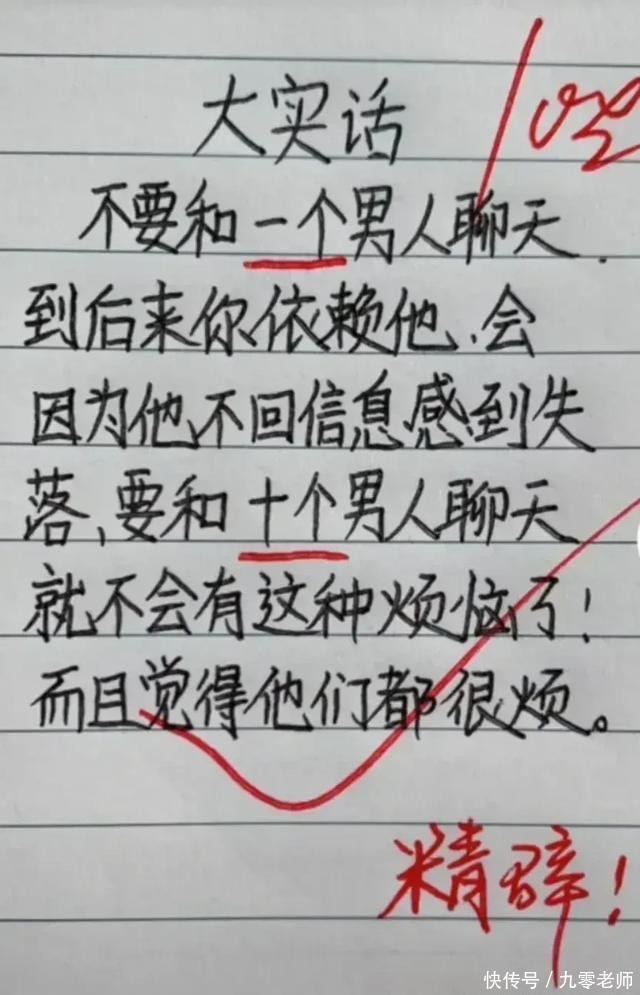 大实话
不要和一个男人聊天.
到后来你依赖他、会
因为他不回信息感到失
落、要和十个男人聊天
就不会有这种烦恼了！
而且觉得他们都很烦。
精辟！
快传号／九零老师